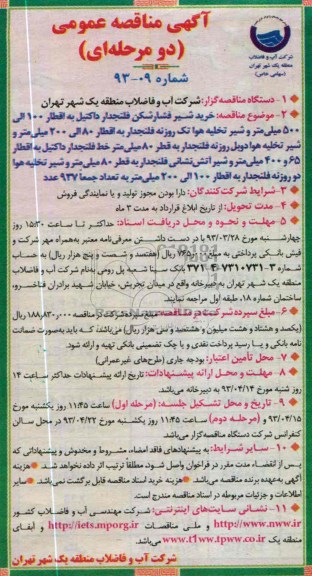 آگهی مناقصه عمومی
(دو مرحله‌ای)
شماره ۰۹-۹۳
شرکت آب و فاضلاب
منطقه یک شهر تهران
(سهامی خاص)
۱- دستگاه مناقصه‌گزار: شرکت آب و فاضلاب منطقه یک شهر تهران
۲- موضوع مناقصه: خرید شیر فشارشکن فلنجدار داکتیل به اقطار ۱۰۰ الی
۵۰۰ میلی‌متر و شیر تخلیه هوا تک روزنه فلنجدار به اقطار ۸۰ الی ۲۰۰ میلی‌متر و
شیر تخلیه هوا دوبل روزنه فلنجدار به قطر ۸۰ میلی‌متر خط فلنجدار داکتیل به اقطار
۶۵ و ۴۰۰ میلی‌متر و شیر آتش‌نشانی فلنجدار به قطر ۸۰ میلی‌متر و شیر تخلیه هوا
دو روزنه فلنجدار به اقطار ۱۰۰ الی ۲۰۰ میلی‌متر به تعداد جمعا ۹۳۷ عدد
۳- شرایط شرکت‌کنندگان: دارا بودن مجوز تولید و یا نمایندگی فروش
۴- مدت تحویل: از تاریخ ابلاغ قرارداد به مدت ۳ ماه
۵- مهلت و نحوه و محل دریافت اسناد: حداکثر تا ساعت ۱۵:۳۰ روز
چهارشنبه مورخ ۹۳/۰۳/۲۸ با در دست داشتن معرفی‌نامه معتبر به‌همراه مهر شرکت و
فیش بانکی پرداختی به مبلغ ریال (هفتصد و شصت و پنج هزار ریال) به حساب
شماره ۳-۷۳۱-۷۳۱۰-۴-۳۷۱ بانک سینا شعبه پل رومی به‌نام شرکت آب و فاضلاب
منطقه یک شهر تهران به‌دبیرخانه واقع در میدان تجریش، خیابان شهید برادران فناخسرو،
ساختمان شماره ۱۸، طبقه اول مراجعه نمایند.
۶- مبلغ سپرده شرکت در مناقصه: مبلغ سپرده شرکت در مناقصه ۱۸۸,۸۳۰,۰۰۰ ریال
(یکصد و هشتاد و هشت میلیون و هشتصد و سی هزار ریال) می‌باشد، که باید به‌صورت ضمانت
نامه بانکی و یا رسید پرداخت نقدی و یا چک تضمینی بانکی تهیه و ارائه شود.
۷- محل تأمین اعتبار: بودجه جاری (طرح‌های غیرعمرانی)
۸- مهلت و محل ارائه پیشنهادات: تاریخ ارائه پیشنهادات حداکثر ساعت ۱۴
روز شنبه مورخ ۹۳/۰۴/۱۴ به دبیرخانه می‌باشد.
۹- تاریخ و محل تشکیل جلسه: (مرحله اول) ساعت ۱۱:۴۵ روز یکشنبه مورخ
۹۳/۰۴/۱۵ و (مرحله دوم) ساعت ۱۱:۴۵ روز یکشنبه مورخ ۹۳/۰۴/۲۲ در محل سالن
کنفرانس شرکت دستگاه مناقصه‌گزار می‌باشد.
۱۰- سایر شرایط: به پیشنهادهای فاقد امضاء، مشروط و مخدوش و پیشنهاداتی که
پس از انقضاء مدت مقرر در فراخوان واصل شود، مطلقا ترتیب اثر داده نخواهد شد. هزینه
آگهی به‌عهده برنده مناقصه می‌باشد. هزینه خرید اسناد مناقصه قابل برگشت نمی‌باشد. سایر
اطلاعات و جزئیات مربوطه در اسناد مناقصه مندرج است.
۱۱- نشانی سایت‌های اینترنتی: شرکت مهندسی آب و فاضلاب کشور
http://www.nww.ir و ملی مناقصات http://iets.mporg.ir و آبفای
منطقه یک www.t1ww.tpww.co.ir می‌باشد.
شرکت آب و فاضلاب منطقه یک شهر تهران